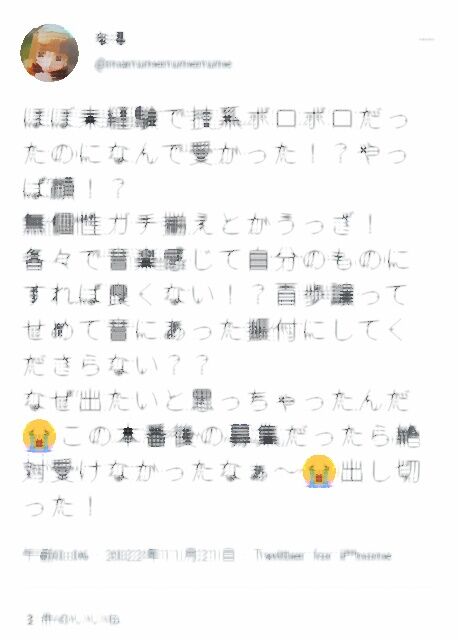 ほぼ未経験で技系ボロボロだっ
たのになんで受かった！？やっ
ぱ顔！？
無個性ガチ揃えとかうっざ！
各々で音楽感じて自分のものに
すれば良くない！？百歩譲って
せめて音にあった振付にしてく
ださらない？？
なぜ出たいと思っちゃったんだ
😭この本番後の募集だったら絶
対受けなかったなぁ〜😭出し切
った！
Twitter for iPhone